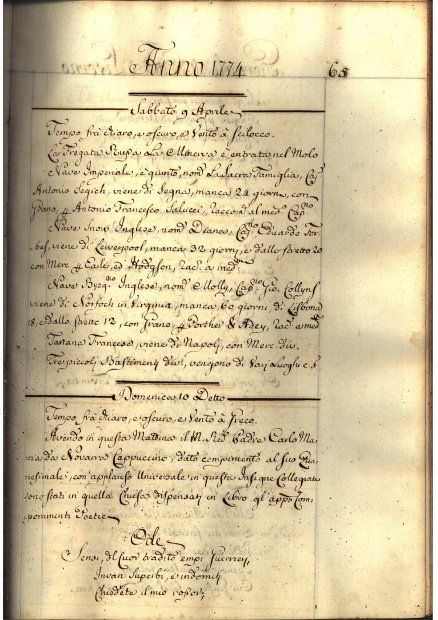 Anno 1774
65
Sabbato 9 Aprile
Tempo frà Chiaro, e oscuro, e Vento à Scilocco.
La Fregata Russa La Minerva è entrata nel Molo
Nave Imperiale, è giunto, nom La Sacra Famiglia, Cap
Antonio Segich, viene di Segna, manca 24 giorni, con
Grano, p Antonio Francesco Salucci, raccond al med Capno
Nave Snow Inglese, nom Diana, Capno Eduardo For
bes, viene di Leiverpool, manca 32 giorni, e dallo stretto 20
con Merc p Earle, ed Hodgson, racd a med
Nave Inglese, nom Molly, Capno Gio. Collyns
viene di Norfoch in Virginia, manca 60 giorni, di Lisbona
18, e dallo stretto 12, con Grano, p Porther & Adey, racd a med
Tartana Francese, viene di Napoli, con Merc div.
Tre piccoli Bastimenti divi, vengono di Varj Luoghi
Domenica 10 Detto
Tempo frà Chiaro, e oscuro, e Vento à Greco.
Avendo in questa Mattina il M. Rev. Padre Carlo Ma
ria da Novarra Cappuccino, dato compimento al suo Qua
resimale, con applauso Universale in questa Insigne Collegiata
sono stati in quella Chiesa dispensati in Libro gl' appo Com
ponimenti Poetici
Ode
Sensi, del Cuor tradito empi Guerrieri,
Invan Superbi, e indomiti
Chiedete il mio